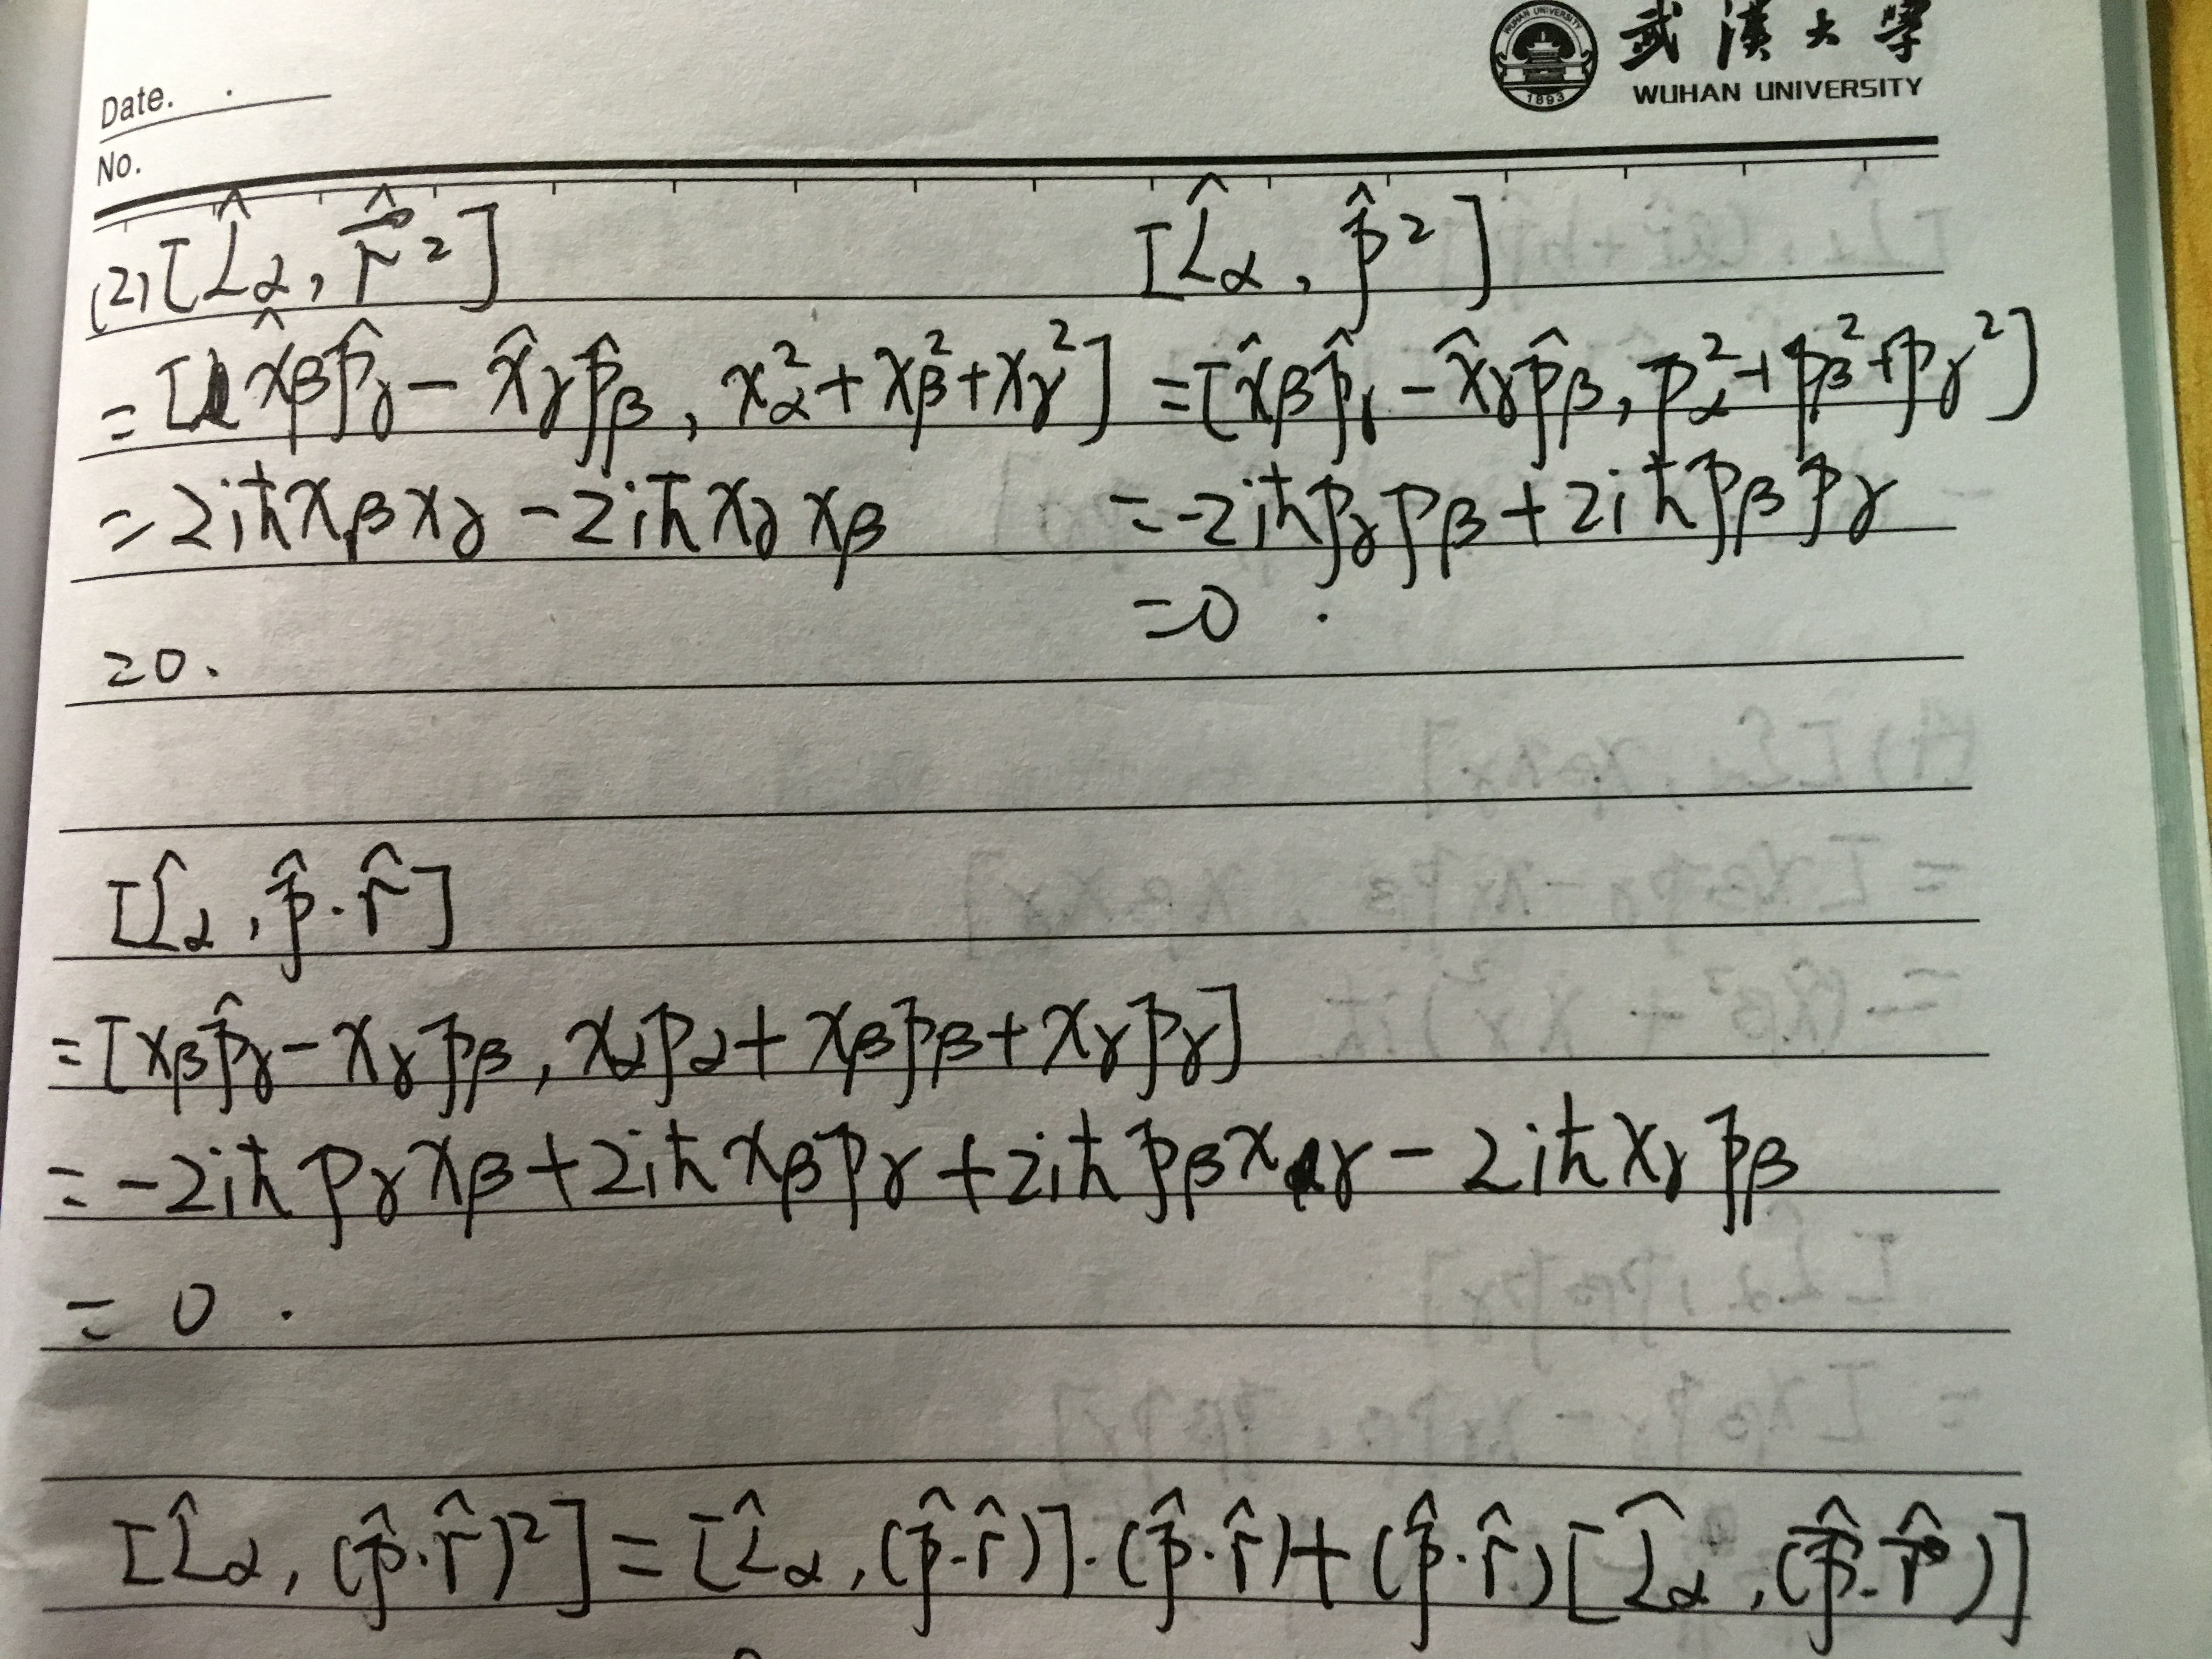 武漢大學
WUHAN UNIVERSITY
WUHAN UNIVERSITY
1893
Date.
No.
(2) [L̂α, r̂⃗²]
= [x̂βp̂γ - x̂γp̂β, xα² + xβ² + xγ²]
= 2iħxβxγ - 2iħxγxβ
= 0.
[L̂α, p̂²]
= [x̂βp̂γ - x̂γp̂β, pα² + pβ² + pγ²]
= -2iħpγpβ + 2iħpβpγ
= 0.
[L̂α, p̂·r̂]
= [xβp̂γ - xγpβ, xαpα + xβpβ + xγpγ]
= -2iħpγxβ + 2iħxβpγ + 2iħpβxγ - 2iħxγpβ
= 0.
[L̂α, (p̂·r̂)²] = [L̂α, (p̂·r̂)]·(p̂·r̂) + (p̂·r̂)[L̂α, (p̂·r̂)]